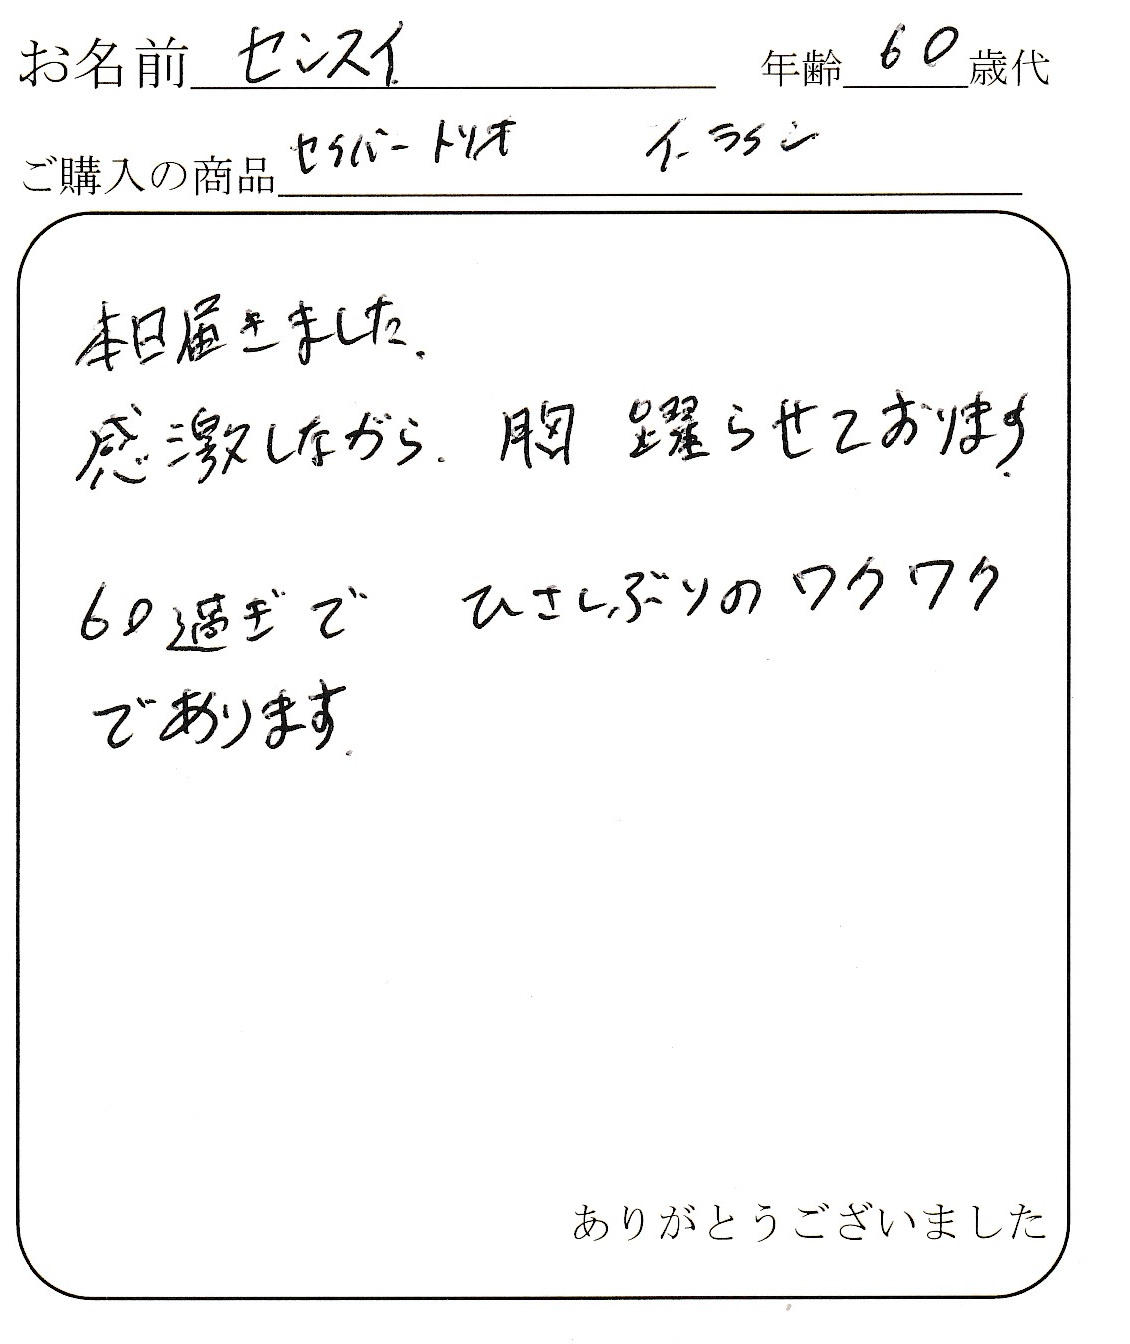 お名前 センスイ 年齢 60 歳代
ご購入の商品 セイバートリオ イーライン
本日届きました.
感激しながら. 胸 躍らせております.
60過ぎで ひさしぶりのワクワク
であります.
ありがとうございました